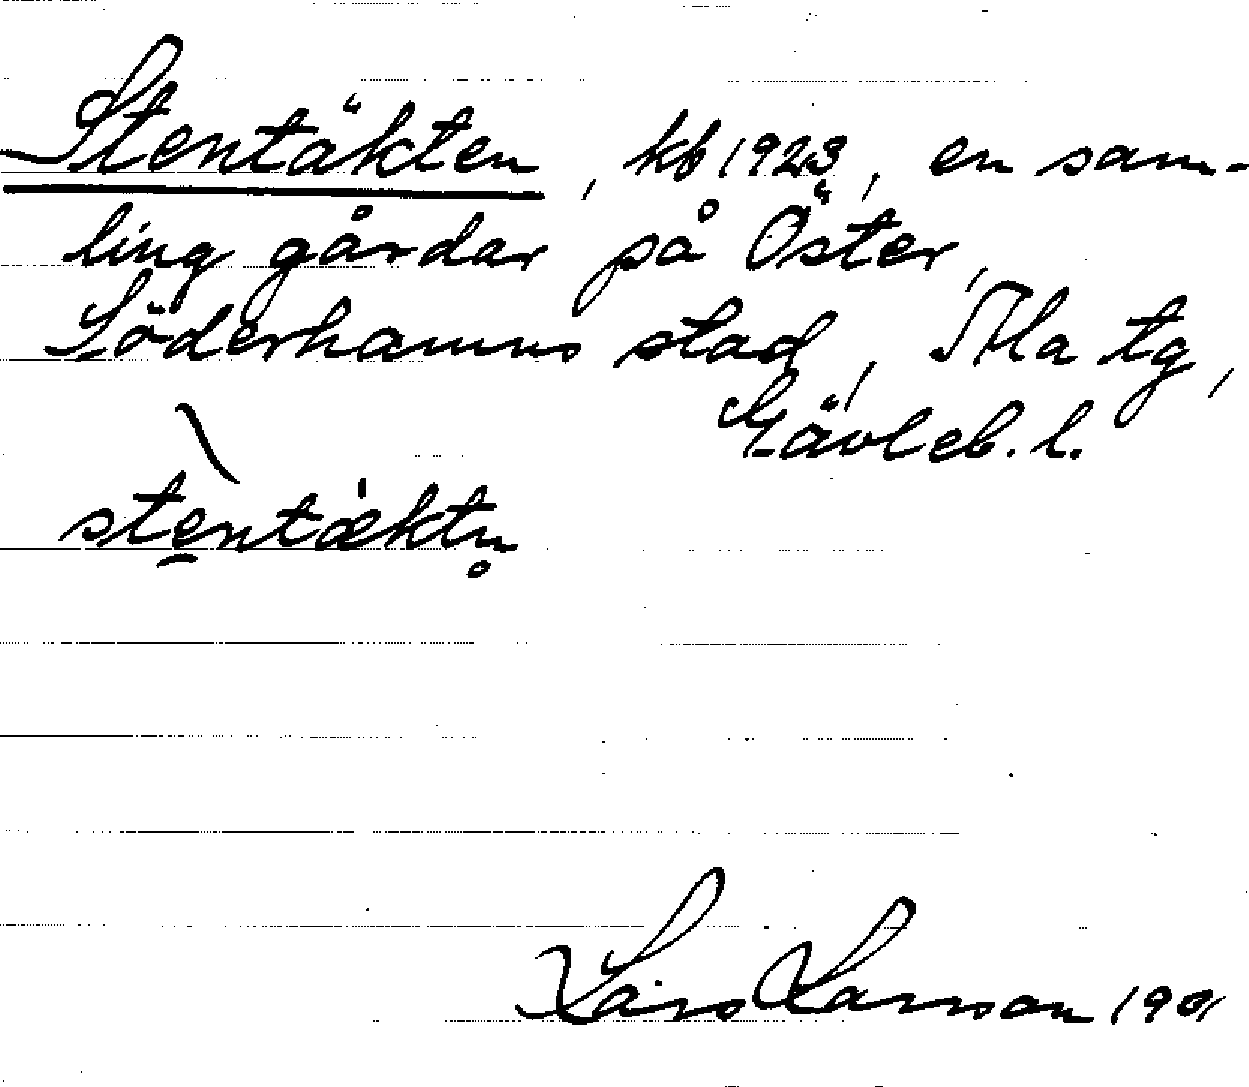 Stentäkten, kb 1923, en sam-
ling gårdar på Öster,
Söderhamns stad, Ala tg,
Gävleb. l.
ste̠ntæ̍ktn̥
Lars Larsson 1901